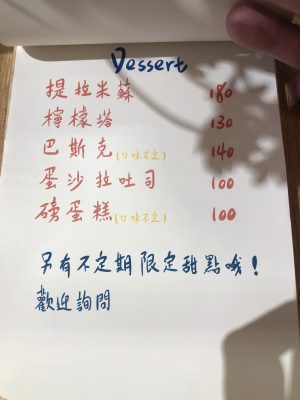 Dessert
提拉米蘇 180
檸檬塔 130
巴斯克(口味不定) 140
蛋沙拉吐司 100
磅蛋糕(口味不定) 100
另有不定期限定甜點哦!
歡迎詢問